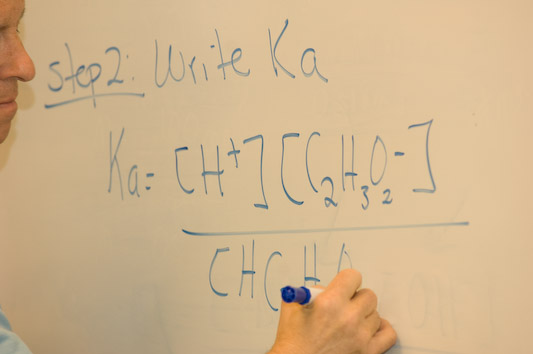 step 2: Write Ka
Ka= [H+][C2H3O2-]
[HC H O